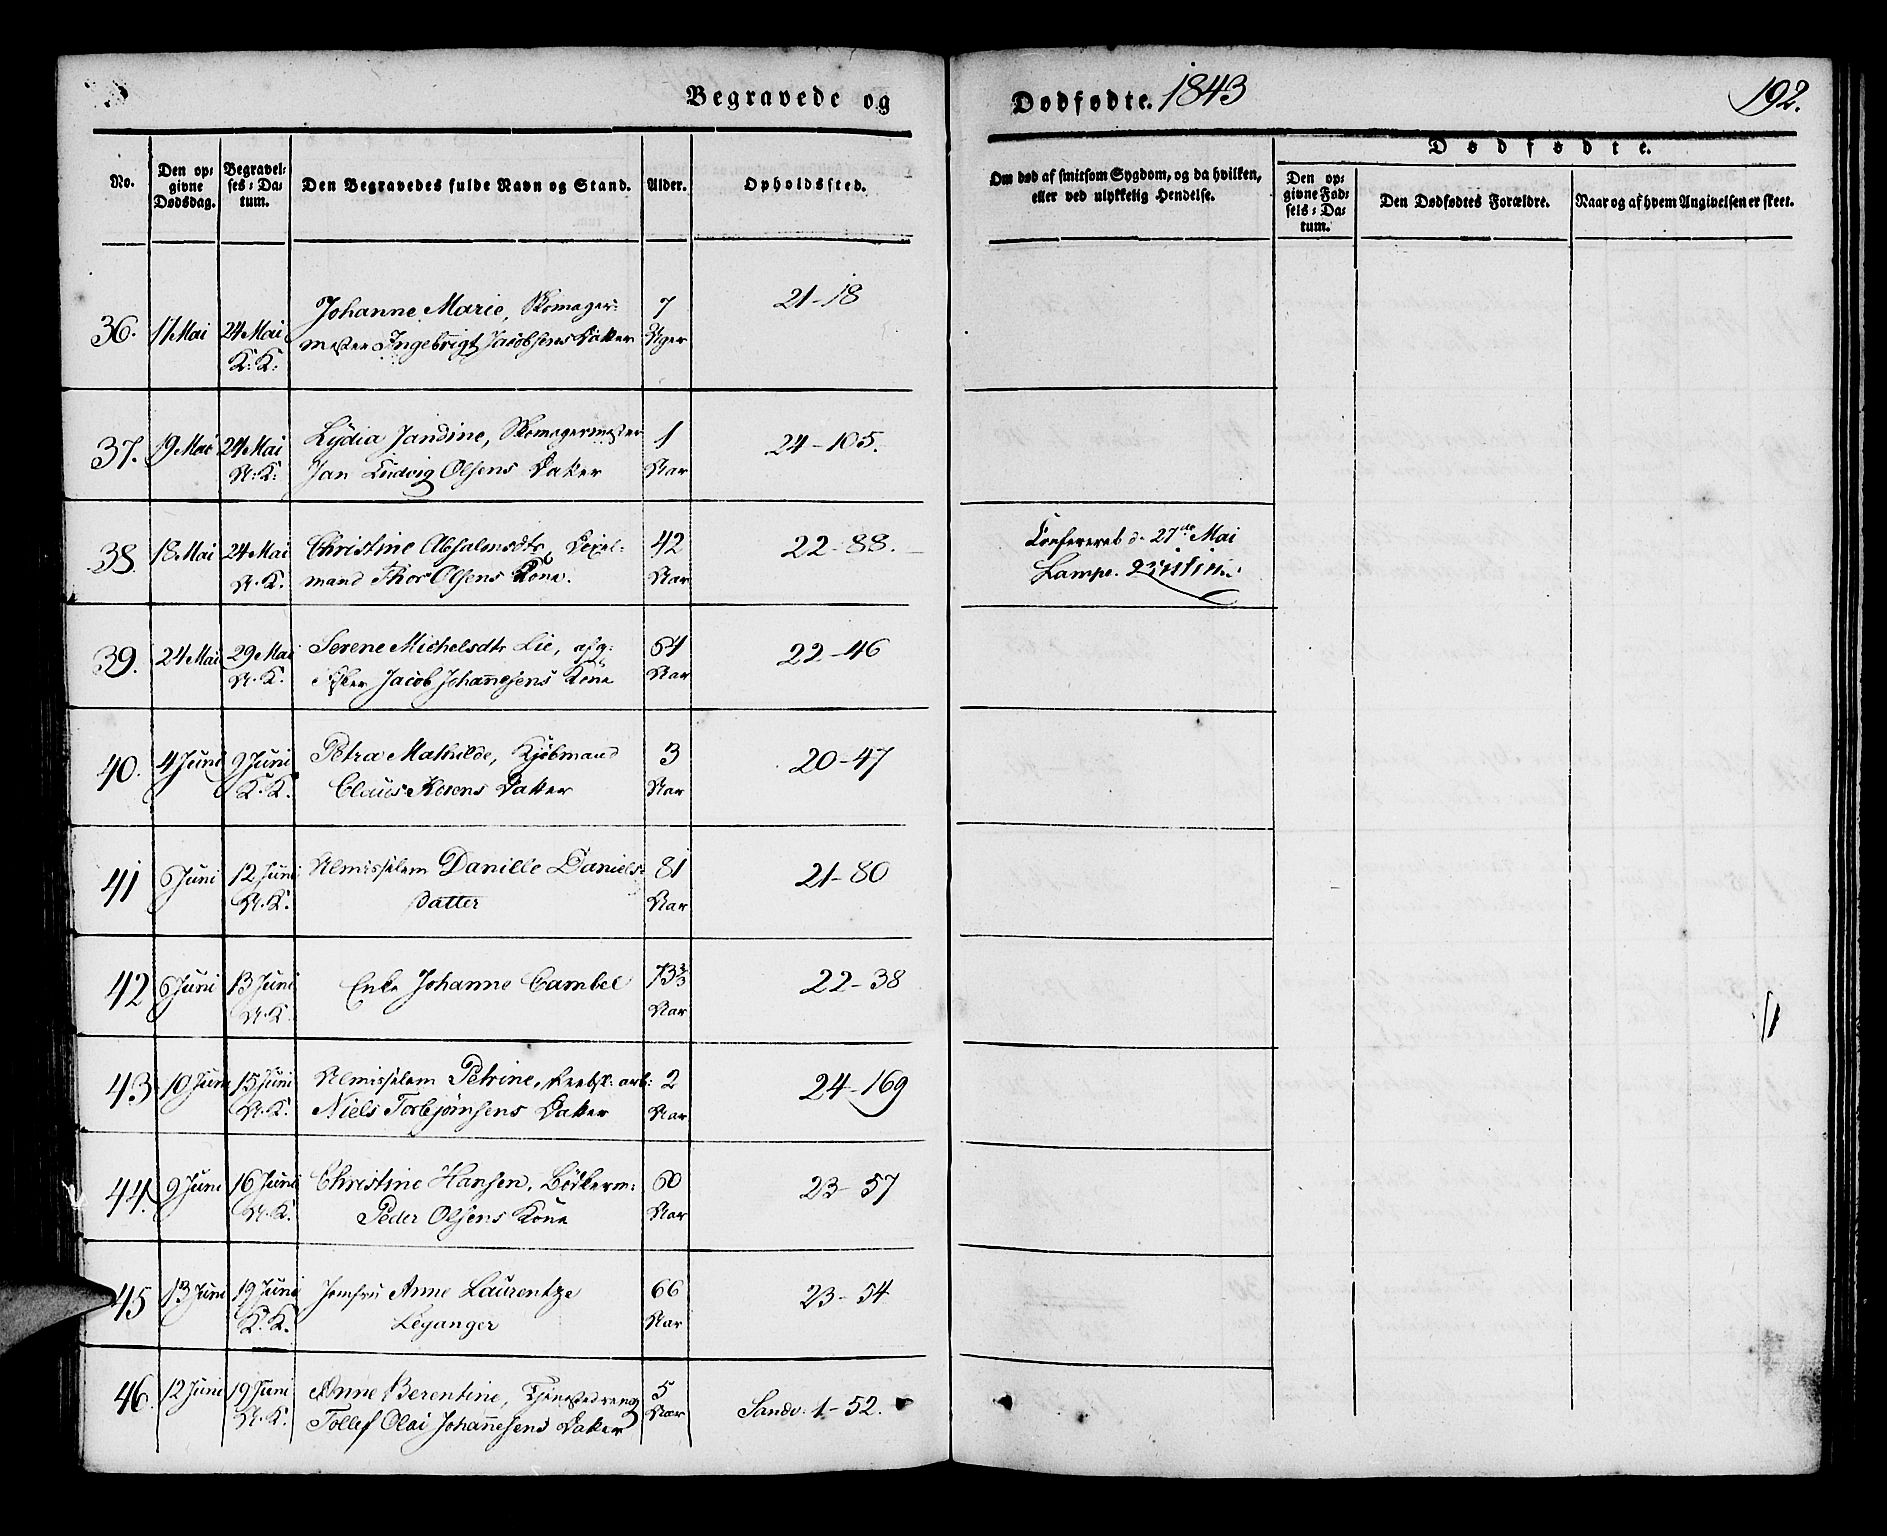 Begravede og Dødfødte. 1843 192.
No. Den opgivne Dødsdag. Begravelses-Datum. Den Begravedes fulde Navn og Stand. Alder. Opholdssted. Om død af smitsom Sygdom, og da hvilken, eller ved ulykkelig Hendelse.
Dødfødte.
Den opgivne Fødsels-Datum. Den Dødfødtes Forældre. Naar og af hvem Angivelsen er skeet.
36. 17 Mai 24 Mai Johanne Marie, Skomager: 7 21-18
K: K: mester Ingebrigt Jacobsens Datter Uger
37. 19 Mai 24 Mai Lydia Jandine, Skomagermester 1 24-105.
A: K: Jan Ludvig Olsens Datter Aar
38. 18 Mai 24 Mai Christine Absalmsdtr, 42 22-88. Confereret d. 27de Mai
A. K. mand Thor Olsens Kone. Aar Lampe.
39. 24 Mai 29 Mai Serene Michelsdtr Lie, afg: 64 22-46
A. K. Jacob Johannesens Kone Aar
40. 4 Juni 9 Juni Petra Mathilde, Kjøbmand 3 20-47
K. K. Claus Rosens Datter Aar
41 6 Juni 12 Juni Almisselem Danille Daniels- 81 21-80
A. K. Datter Aar
42 6 Juni 13 Juni Enke Johanne Cambel 73⅔ 22-38
A. K. Aar
43 10 Juni 15 Juni Almisselem Petrine, arb: 2 24-169
A. K. Niels Torbjørnsens Datter Aar
44. 9 Juni 16 Juni Christine Hansen, Bødkerm: 60 23-57
A. K. Peder Olsens Kone Aar
45 13 Juni 19 Juni Jomfru Anne Laurentze 66 23-54
K. K. Leganger Aar
46. 12 Juni 19 Juni Anne Berentine, Tjenestedreng 5 Sandv. 1-52.
A. K. Tollef Olai Johannesens Datter Aar